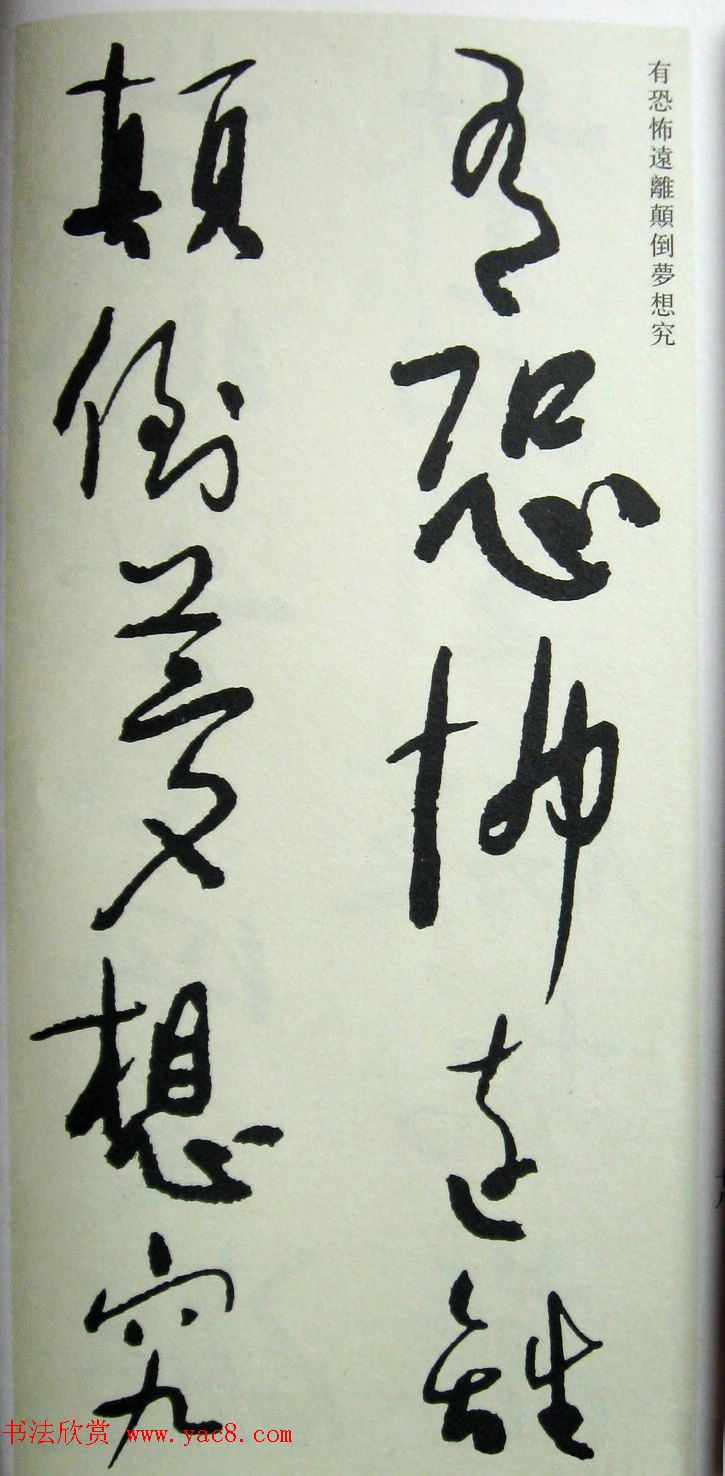 有恐怖遠離顛倒夢想究
有恐怖遠離
顛倒夢想究
书法欣赏 www.yac8.com